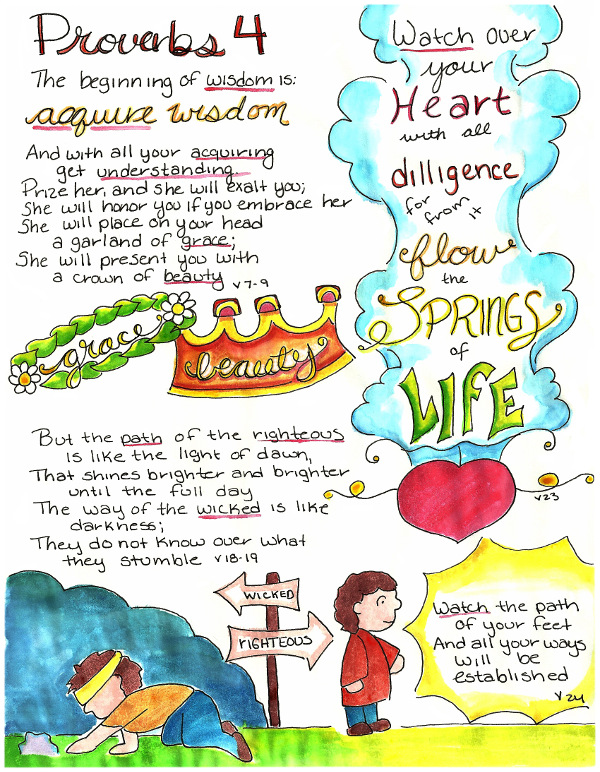 Proverbs 4
The beginning of wisdom is:
acquire wisdom
And with all your acquiring
get understanding.
Prize her, and she will exalt you;
She will honor you if you embrace her
She will place on your head
a garland of grace;
She will present you with
a crown of beauty
v7-9
grace
beauty
Watch over
your
Heart
with all
dilligence
for
from it
flow
the
SPRINGS
of
LIFE
v23
But the path of the righteous
is like the light of dawn,
That shines brighter and brighter
until the full day
The way of the wicked is like
darkness;
They do not know over what
they stumble v18-19
WICKED
RIGHTEOUS
Watch the path
of your feet
And all your ways
will be
established
v24